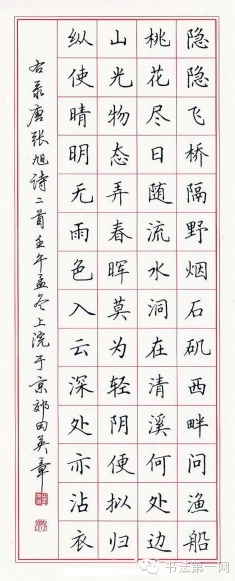 隐隐飞桥隔野烟石矶西畔问渔船
桃花尽日随流水洞在清溪何处边
山光物态弄春晖莫为轻阴便拟归
纵使晴明无雨色入云深处亦沾衣
右录唐张旭诗二首壬午孟冬上浣于京郊田英章
书法第一网